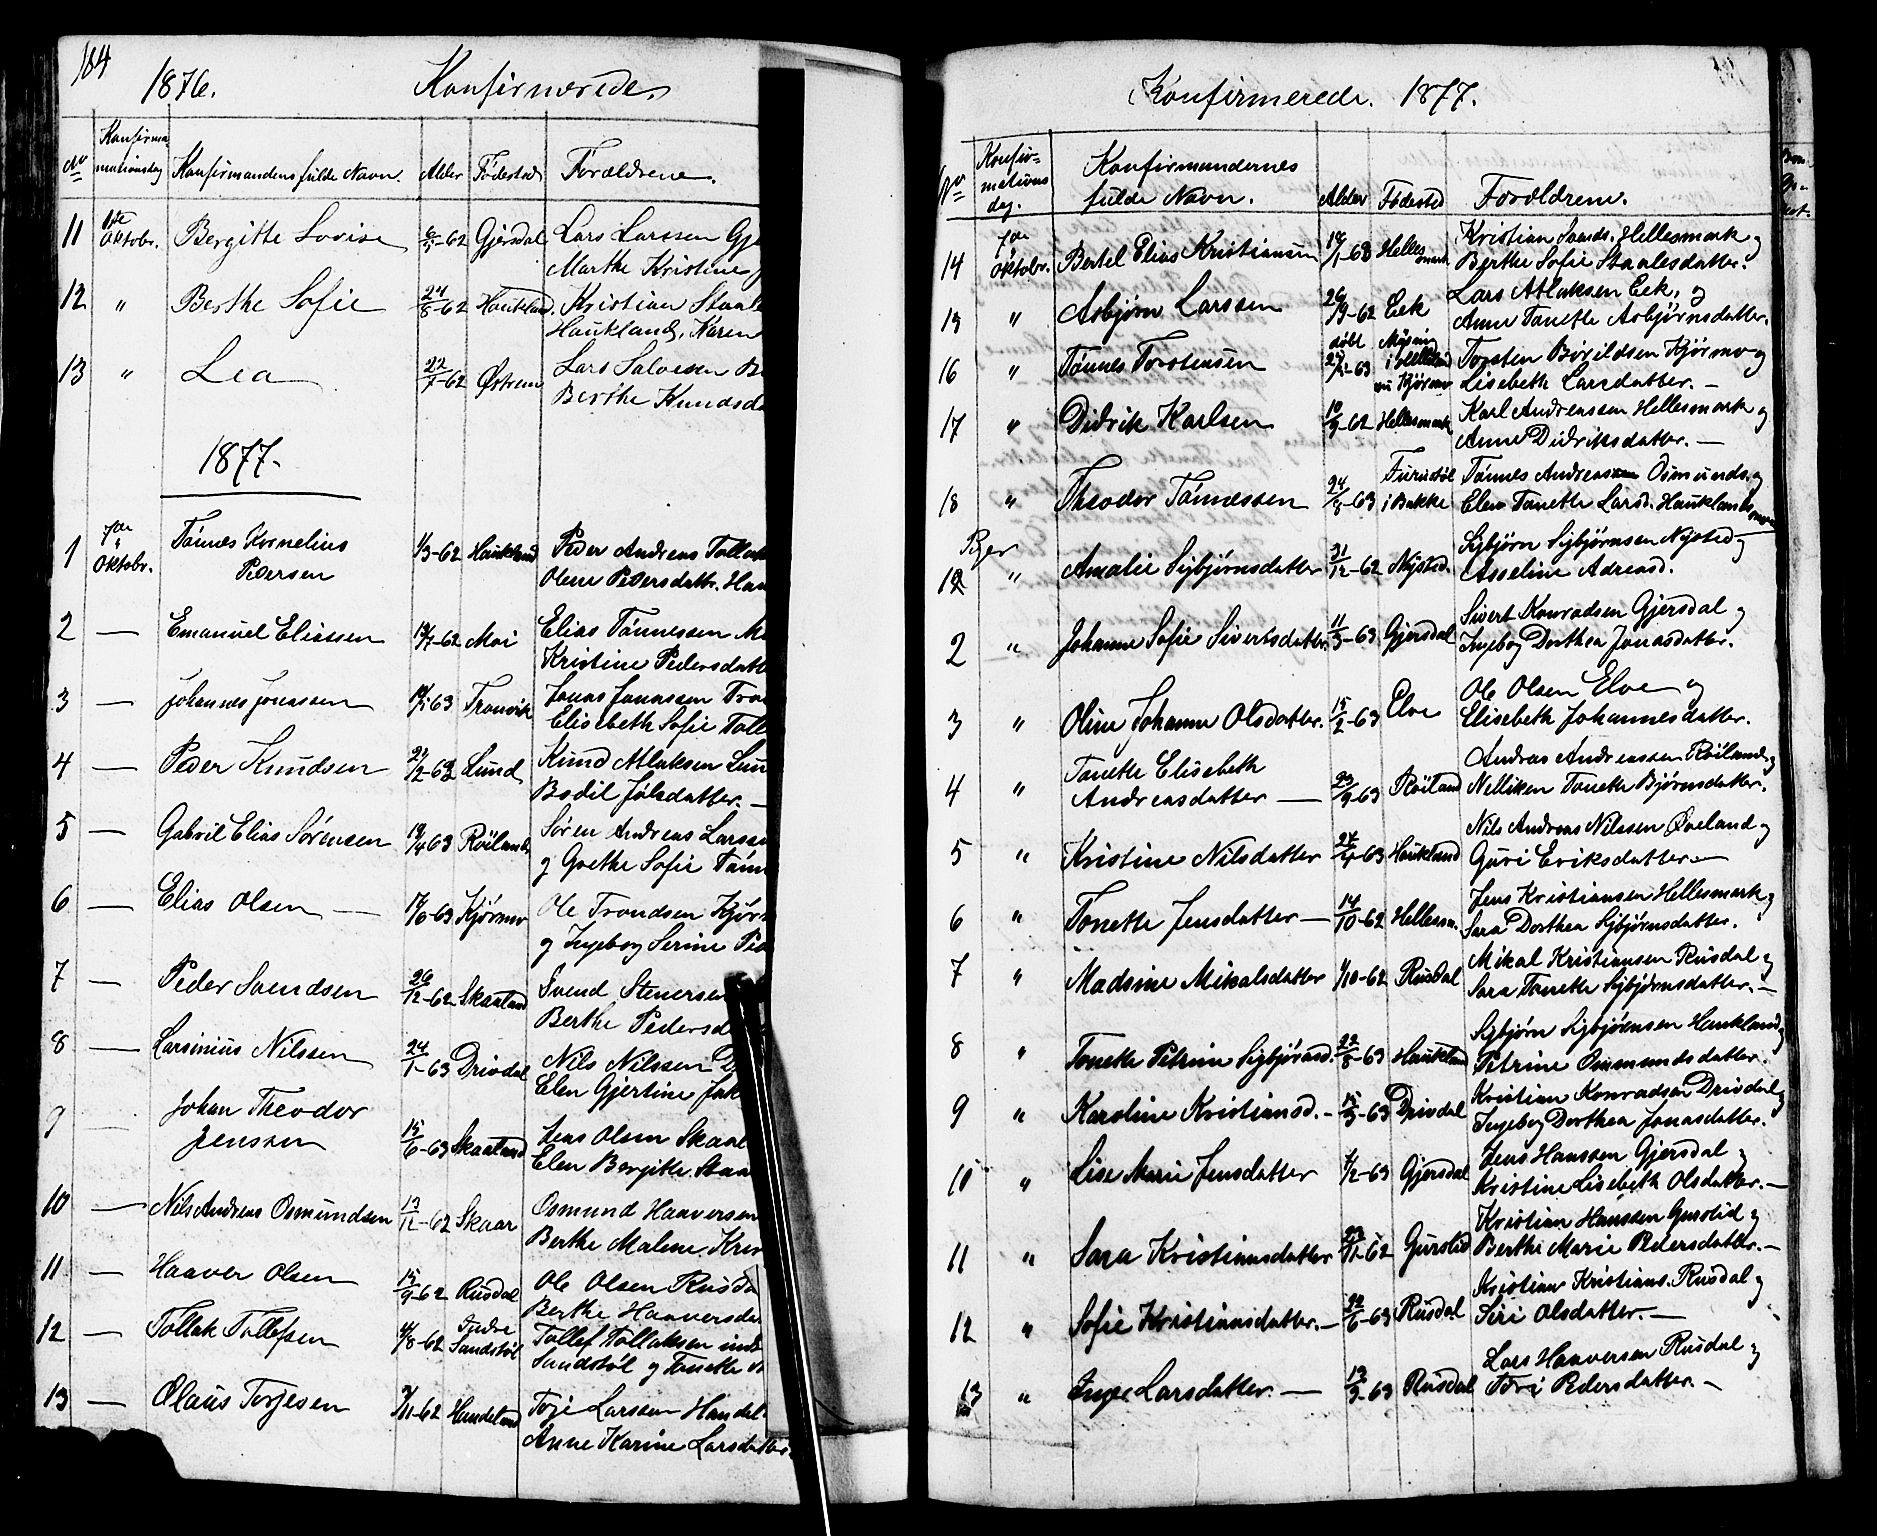 184
1876. Konfirmerede.
No Konfirmationsdag Konfirmandens fulde Navn. Alder Fødested Forældrene.
11 1ste Oktobr. Bergitte Lovise 6/5-62 Gjersdal Lars Larssen
Marthe Kristine
12 " Berthe Sofie 24/8-62 Haukland. Kristian
Hauklands, Karen
13 " Lea 22/7-62 Østrem Lars Salvesen
Berthe Knudsd
1877.
1 7de Oktobr. Tønnes Kornelius Pedersen 1/3-62 Haukland Peder Andreas
Oline Pedersdattr.
2 — Emanuel Eliassen 62 Moi Elias Tønnessen
Kristine Pedersdatt
3 — Johannes Jonassen 63 Tronvik Jonas Jonassen
Elisebeth Sofie
4 — Peder Knudsen Lund Knud Atlaksen Lun
Bodil Jølsdatter. —
5 — Gabril Elias Sørensen 19/4 63 Røiland Søren Andreas Larss
g Goethe Sofie Tøn
6 — Elias Olsen — 63 Kjørmo Ole Trondsen Kjør
g Ingeborg Serine
7 — Peder Svendsen 26/12-62 Skaaland Svend Stenersen
Berthe Pedersd
8 — Larsinius Nilssen 24/1-63 Drivdal Nils Nilssen
Elen Gjertine Jak
9 — Johan Theodor
Jenssen 15/6-63 Skaaland Jens Olsen Skaal
Elen Bergitte
10 — Nils Andreas Osmundsen 13/12-62 Skaar Osmund Haaversen
Berthe Malene Kris
11 — Haaver Olsen 15/9-62 Rusdal Ole Olsen Rusda
Berthe Haaversda
12 — Tollak Tollefsen 8-62 Indre Sandstøl Tollef Tollaksen ind
Sandstøl g Tonette
13 — Olaus Torjesen 11-62 Handeland Torje Larssen Handel
Anne Karine Larsdatter.
Konfirmerede. 1877.
No Konfirmations dag. Konfirmandernes fulde Navn. Alder Fødested Forældrene.
14 7de Oktobr. Bertel Elias Kristiansen 63 Hellesmark Kristian Svends. Hellesmark g
Berthe Sofie Staalesdatter.
15 " Asbjørn Larssen 26/9-62 Eek Lars Atlaksen Eek, g
Anne Tonette Asbjørnsdatter.
16 " Tønnes Torstensen døbt 63 Torsten Kjørmo g
Lisebeth Larsdatter. —
17 " Didrik Karlsen 10/9-62 Hellesmark Karl Andreassen Hellesmark g
Anne Didriksdatter. —
18 " Theodor Tønnessen 24/8-63 Furustøl i Bakke Tønnes Andreassen Osmunds. g
Elen Tonette Larsd. Hauklandsmoen
Piger
1 " Amalie Sigbjørnsdatter 31/12-62 Nysted. Sigbjørn Sigbjørnsen Nysted g
Asseline Adreasd.
2 " Johanne Sofie Sivertsdatter. 11/3-63 Gjersdal Sivert Konradsen Gjersdal g
Ingebog Dorthea Jonasdattr.
3 " Oline Johanne Olsdatter. 15/2-63 Elve Ole Olsen Elve g
Elisebeth Johannesdatter.
4 " Tonette Elisebeth
Andreasdatter — 23/9-63 Røiland Andreas Andreassen Røiland g
Nelliken Tonette Bjørnsdatter.
5 " Kristine Nilsdatter 24/4-63 Haukland Nils Andreas Nilssen Øveland g
Guri Eriksdatter. —
6 " Tonette Jensdatter — 14/10-62 Hellesm. Jens Kristiansen Hellesmark g
Sara Dorthea Sigbjørnsdatter.
7 " Madsine Mikalsdatter 1/10-62 Rusdal Mikal Kristiansen Rusdal g
Sara Tonette Sigbjørnsdatter. —
8 " Tonette Petrine Sigbjørnsd. 22/8-63 Haukland Sigbjørn Sigbjørnsen Haukland g
Petrine Ommundsdatter.
9 " Karoline Kristiansd. — 15/3-63 Drivdal Kristian Konradsen Drivdal g
Ingebog Dorthea Jonasdatter.
10 " Lise Marie Jensdatter 2-63 Gjersdal Jens Hanssen Gjersdal g
Kristine Lisebeth Olsdatter. —
11 " Sara Kristiansdatter 23/11-62 Gurslid Kristian Hanssen Gurslid g
Berthe Marie Pedersdatter. —
12 " Sofie Kristiansdatter. — 22/6-63 Rusdal Kristian Kristians. Rusdal g
Siri Olsdatter. —
13 " Inge Larsdatter. — 13/9-63 Rusdal Lars Haaversen Rusdal g
Tori Pedersdatter. —